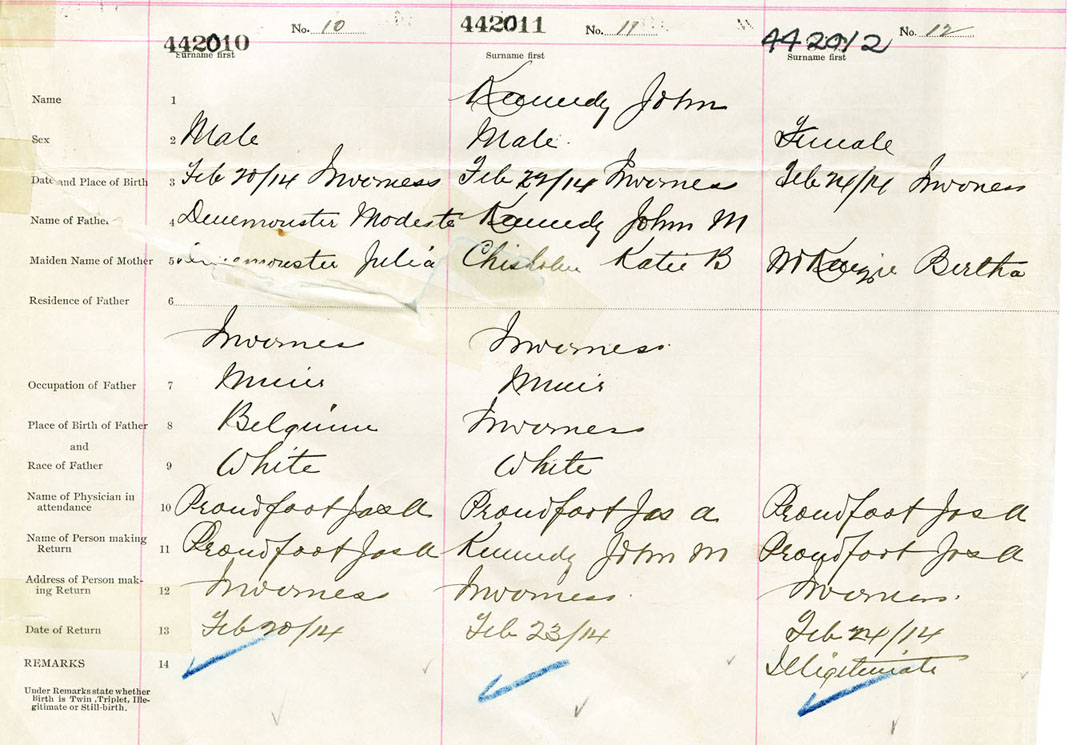 442010 No. 10 442011 No. 11 442012 No. 12
Surname first Surname first Surname first
Name 1 Kennedy John
Sex 2 Male Male Female
Date and Place of Birth 3 Feb 20/14 Inverness Feb 22/14 Inverness Feb 24/14 Inverness
Name of Father 4 Modeste Kennedy John M
Maiden Name of Mother 5 Julia Chisholm Katie B McKenzie Bertha
Residence of Father 6
Inverness Inverness
Occupation of Father 7 Miner Miner
Place of Birth of Father 8 Belgium Inverness
and
Race of Father 9 White White
Name of Physician in
attendance 10 Proudfoot Jas A Proudfoot Jas A Proudfoot Jas A
Name of Person making
Return 11 Proudfoot Jas A Kennedy John M Proudfoot Jas A
Address of Person mak-
ing Return 12 Inverness Inverness Inverness
Date of Return 13 Feb 20/14 Feb 23/14 Feb 24/14
REMARKS 14 Illigitimate
Under Remarks state whether
Birth is Twin, Triplet, Ille-
gitimate or Still-birth.